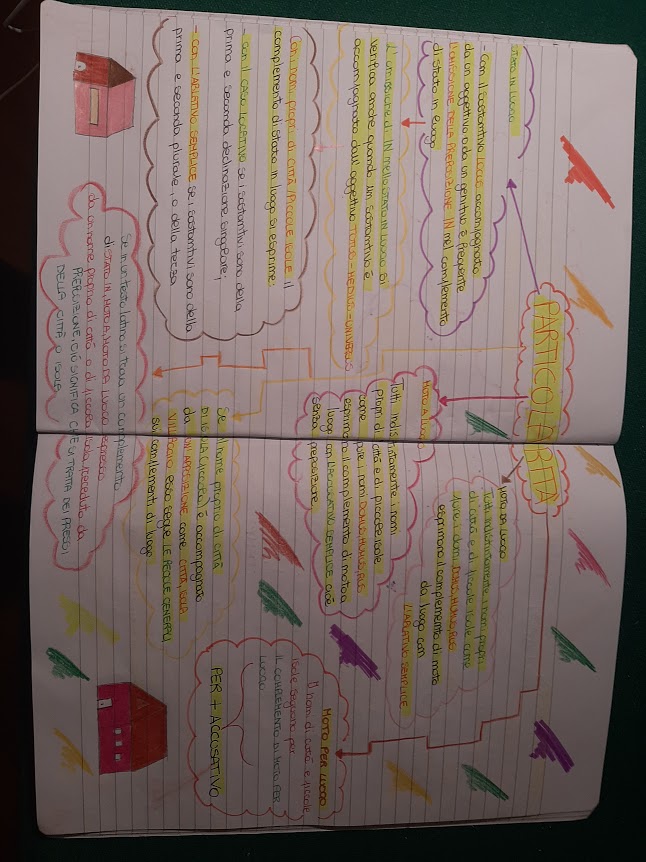 PARTICOLARITÀ
STATO IN LUOGO
- Con il sostantivo LOCUS accompagnato
da un aggettivo o da un genitivo è frequente
L'OMISSIONE DELLA PREPOSIZIONE IN nel complemento
di stato in luogo
L'omissione di IN nello STATO IN LUOGO si
verifica anche quando un sostantivo è
accompagnato dall'aggettivo TOTUS - MEDIUS - UNIVERSUS
Con nomi propri di CITTÀ/PICCOLE ISOLE il
complemento di stato in luogo si esprime:
- con il CASO LOCATIVO se i sostantivi sono della
prima e seconda declinazione singolare;
- con L'ABLATIVO SEMPLICE se i sostantivi sono della
prima e seconda plurale, o della terza
Se in un testo latino si trova un complemento
di STATO IN, MOTO A, MOTO DA LUOGO espresso
da un nome proprio di città o di piccola isola preceduto da
PREPOSIZIONE, CIÒ SIGNIFICA CHE SI TRATTA DEI PRESSI
DELLA CITTÀ O ISOLA
MOTO A LUOGO
Tutti indistintamente i nomi
propri di città e di piccole isole
come pure i nomi DOMUS, HUMUS, RUS
esprimono il complemento di moto a
luogo con L'ACCUSATIVO SEMPLICE cioè
senza preposizione
MOTO DA LUOGO
Tutti indistintamente i nomi propri
di città e di piccole isole come
pure i nomi DOMUS, HUMUS, RUS
esprimono il complemento di moto
da luogo con
L'ABLATIVO SEMPLICE
Se il nome proprio di città
DI ISOLA (piccola) è accompagnato
da UN'APPOSIZIONE come CITTÀ, ISOLA
VILLAGGIO esso segue LE REGOLE GENERALI
sui complementi di luogo
MOTO PER LUOGO
I nomi di città e piccole
isole seguono per
IL COMPLEMENTO DI MOTO PER
LUOGO
PER + ACCUSATIVO